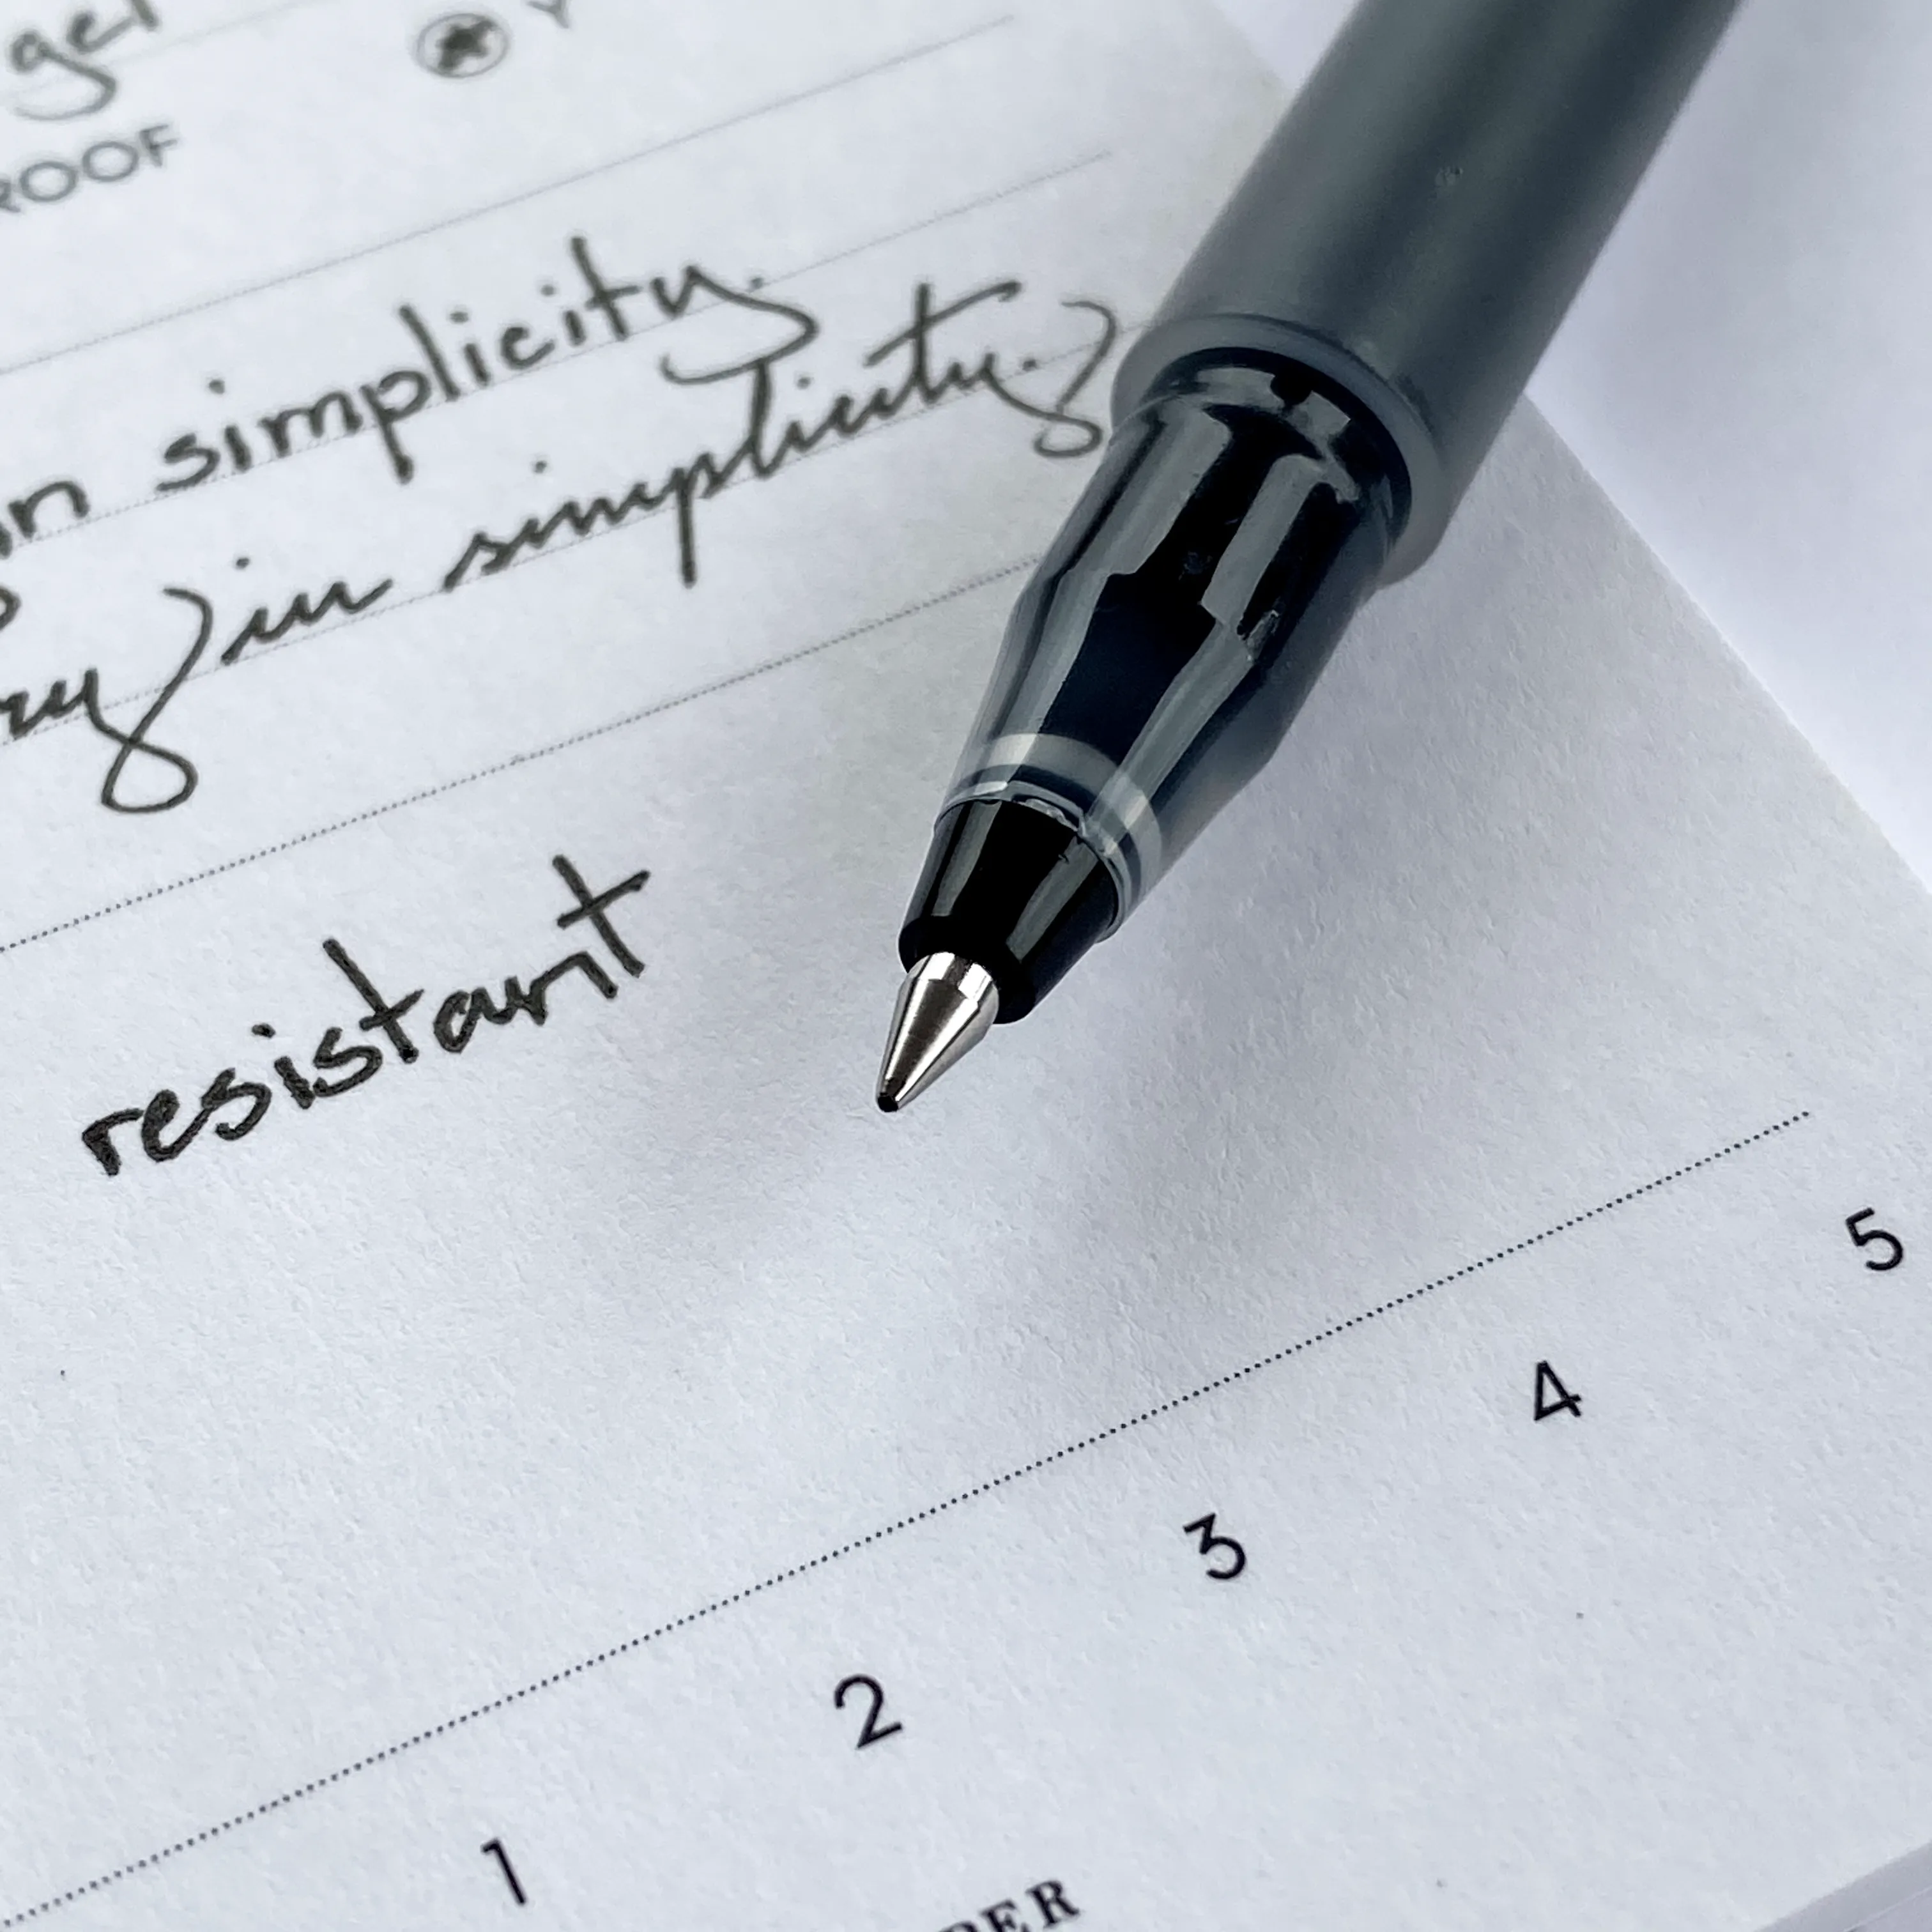 gel
Y
ROOF
in simplicity.
ry in simplicity.
resistant
1 2 3 4 5
PER